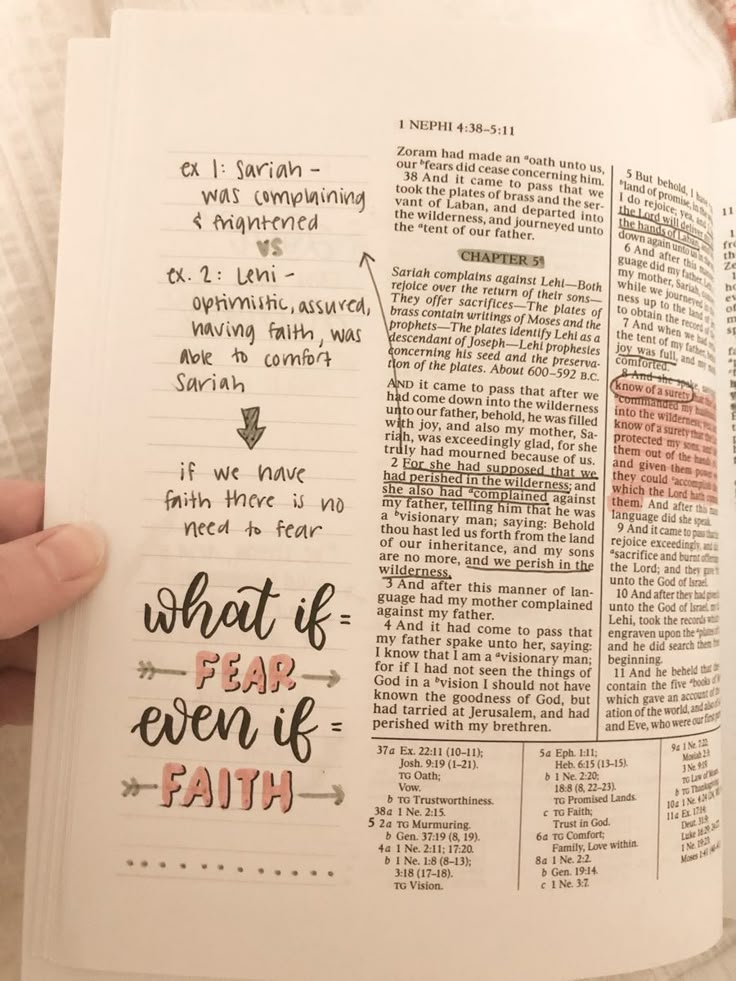 ex 1: Sariah -
was complaining
& frightened
VS
ex. 2: Lehi -
optimistic, assured,
having faith, was
able to comfort
Sariah
if we have
faith there is no
need to fear
what if =
FEAR
even if =
FAITH
1 NEPHI 4:38–5:11
Zoram had made an ᵃoath unto us,
our ᵇfears did cease concerning him.
38 And it came to pass that we
took the plates of brass and the ser-
vant of Laban, and departed into
the wilderness, and journeyed unto
the ᵃtent of our father.
CHAPTER 5
Sariah complains against Lehi—Both
rejoice over the return of their sons—
They offer sacrifices—The plates of
brass contain writings of Moses and the
prophets—The plates identify Lehi as a
descendant of Joseph—Lehi prophesies
concerning his seed and the preserva-
tion of the plates. About 600–592 B.C.
AND it came to pass that after we
had come down into the wilderness
unto our father, behold, he was filled
with joy, and also my mother, Sa-
riah, was exceedingly glad, for she
truly had mourned because of us.
2 For she had supposed that we
had perished in the wilderness; and
she also had ᵃcomplained against
my father, telling him that he was
a ᵇvisionary man; saying: Behold
thou hast led us forth from the land
of our inheritance, and my sons
are no more, and we perish in the
wilderness.
3 And after this manner of lan-
guage had my mother complained
against my father.
4 And it had come to pass that
my father spake unto her, saying:
I know that I am a ᵃvisionary man;
for if I had not seen the things of
God in a ᵇvision I should not have
known the goodness of God, but
had tarried at Jerusalem, and had
perished with my brethren.
5 But behold, I have
ᵃland of promise, in the
I do rejoice; yea, and
the Lord will deliver
the hands of Laban,
down again unto us in the
6 And after this
guage did my father, Lehi,
my mother, Sariah,
while we journeyed in
ness up to the land of
to obtain the record of
7 And when we had
the tent of my father,
joy was full, and my
comforted.
8 And she spake, saying:
know of a surety that the
ᵃcommanded my husband
into the wilderness; yea,
know of a surety that the
protected my sons, and
them out of the hands
and given them power
they could ᶜaccomplish
which the Lord hath
them. And after this
language did she speak.
9 And it came to pass that
rejoice exceedingly, and did
ᵃsacrifice and burnt offerings
the Lord; and they gave
unto the God of Israel.
10 And after they had given
unto the God of Israel, my
Lehi, took the records which
engraven upon the ᵃplates
and he did search them
beginning.
11 And he beheld that
contain the five ᵃbooks of
which gave an account of
ation of the world, and also
and Eve, who were our first
37a Ex. 22:11 (10–11);
Josh. 9:19 (1–21).
TG Oath;
Vow.
b TG Trustworthiness.
38a 1 Ne. 2:15.
5 2a TG Murmuring.
b Gen. 37:19 (8, 19).
4a 1 Ne. 2:11; 17:20.
b 1 Ne. 1:8 (8–13);
3:18 (17–18).
TG Vision.
5a Eph. 1:11;
Heb. 6:15 (13–15).
b 1 Ne. 2:20;
18:8 (8, 22–23).
TG Promised Lands.
c TG Faith;
Trust in God.
6a TG Comfort;
Family, Love within.
8a 1 Ne. 2:2.
b Gen. 19:14.
c 1 Ne. 3:7.
9a 1 Ne. 7:22;
Mosiah 2:3;
3 Ne. 9:19.
TG Law of
b TG
10a 1 Ne.
11a Ex. 17:14;
Deut. 31:9;
Luke
1 Ne. 19:23;
Moses 1:41